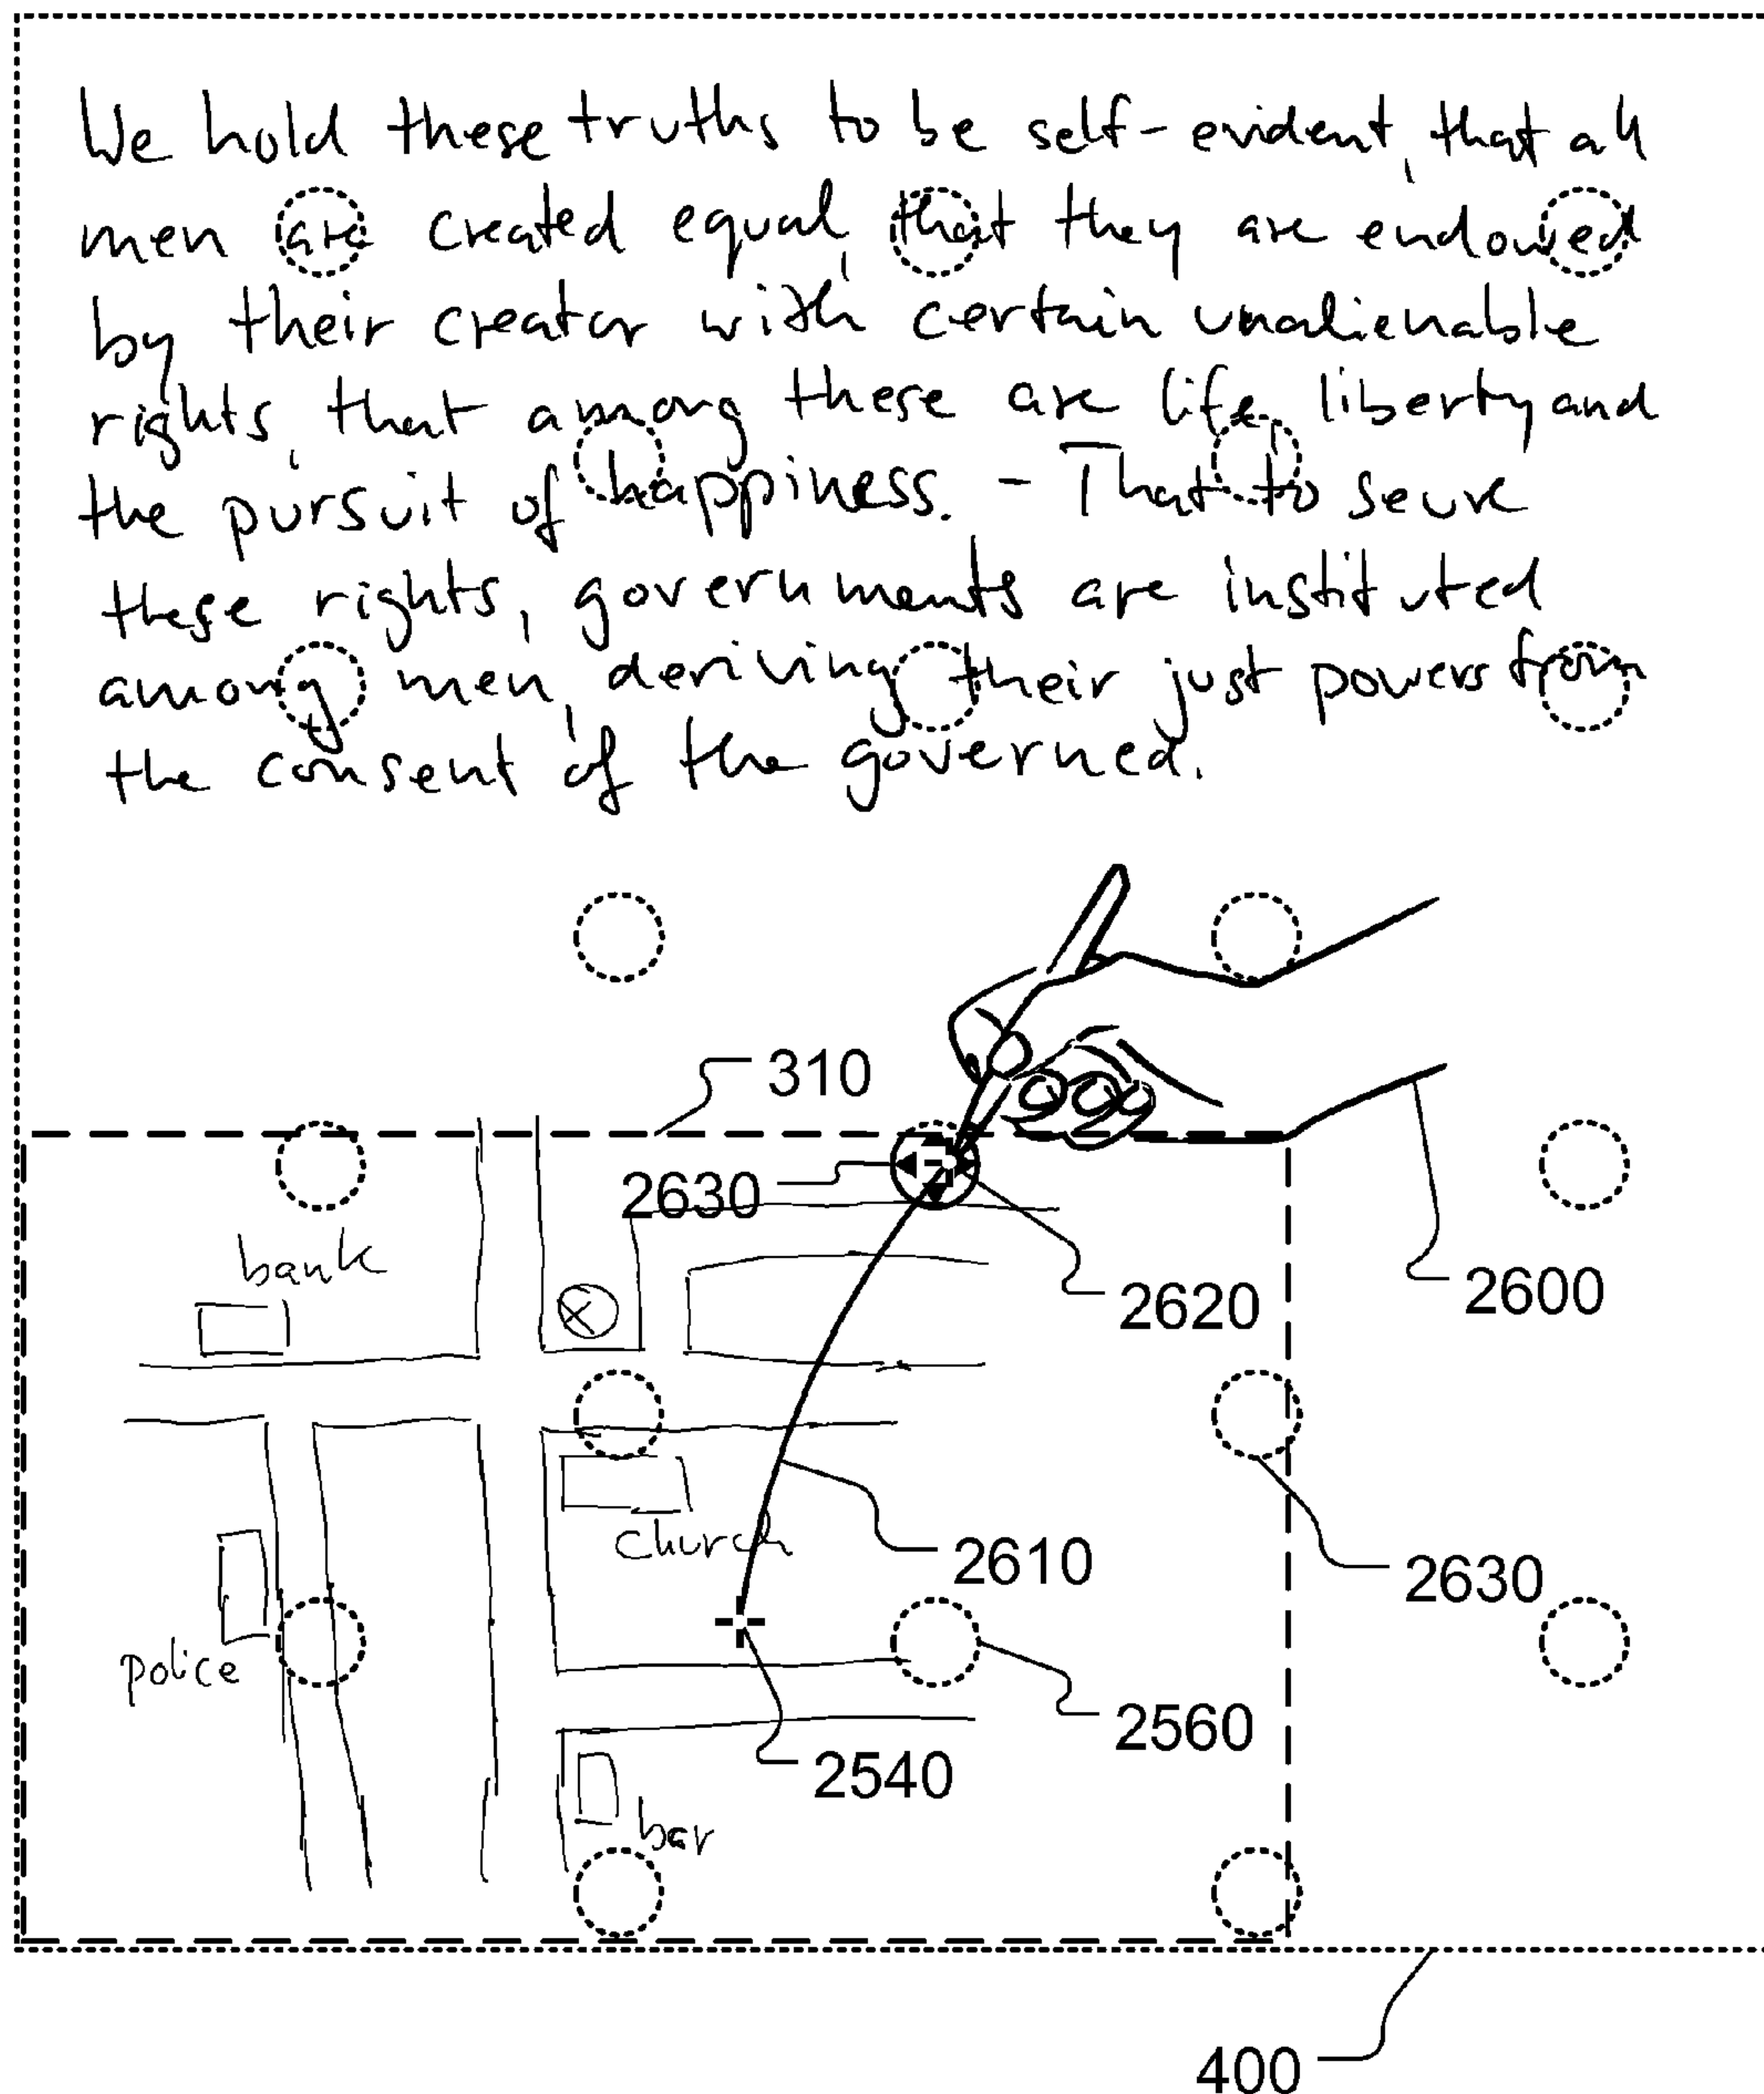 We hold these truths to be self-evident, that all
men are created equal, that they are endowed
by their creator with certain unalienable
rights, that among these are life, liberty and
the pursuit of happiness. - That to secure
these rights, governments are instituted
among men, deriving their just powers from
the consent of the governed.
310
2630
bank
2620
2600
church
2610
2630
police
2560
2540
bar
400